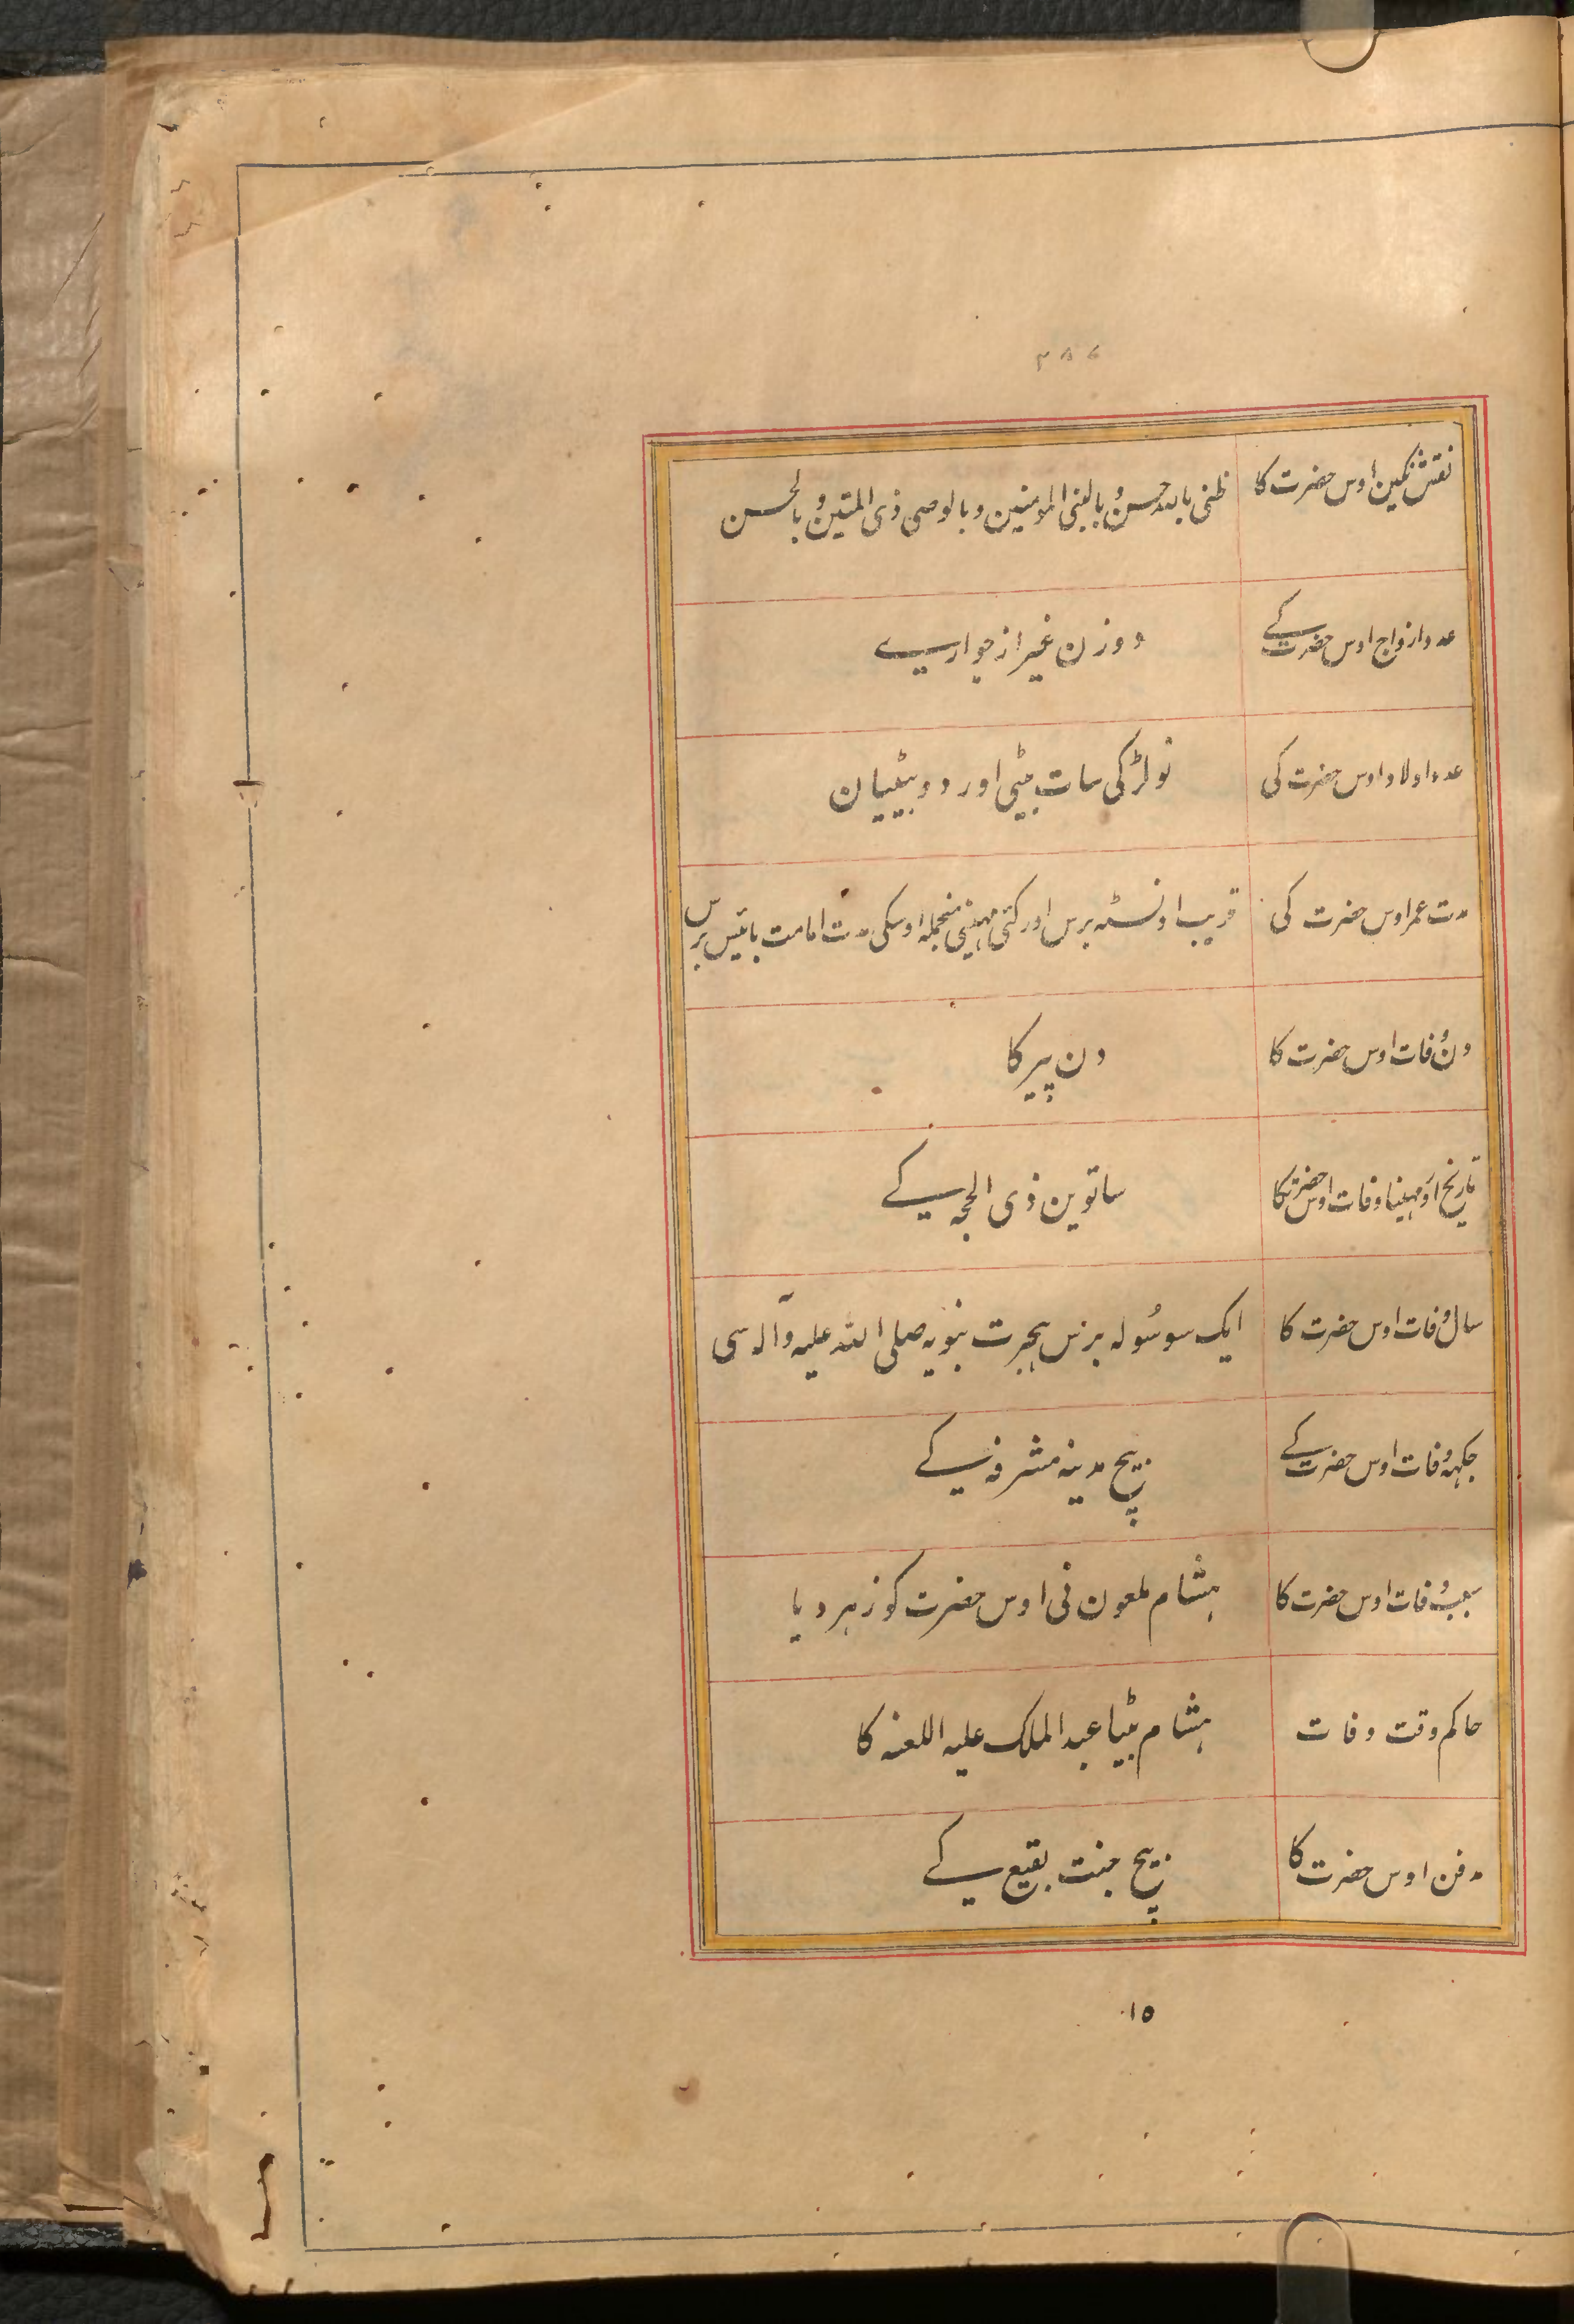 ۳۸۶
نقش نگین اوس حضرت کا ظنی باللہ حسن و بالنبی المومنین و بالوصی ذی المنن و بالحسن
عدد ازواج اوس حضرت کے دو زن غیر از جواریسے
عدد اولاد اوس حضرت کی نو لڑکی سات بیٹی اور دو بیٹییان
مدت عمر اوس حضرت کی قریب اونسٹہ برس اور کئی مہینی منجملہ اوسکی مدت امامت بائیس برس
دن وفات اوس حضرت کا دن پیر کا
تاریخ اور مہینا وفات اوس حضرت کا ساتوین ذی الحجہ کے
سال وفات اوس حضرت کا ایک سو سولہ برس ہجرت نبویہ صلی اللہ علیہ وآلہ سی
جگہہ وفات اوس حضرت کے بیچ مدینہ مشرفہ کے
سبب وفات اوس حضرت کا ہشام ملعون نی اوس حضرت کو زہر دیا
حاکم وقت وفات ہشام بیٹا عبد الملک علیہ اللعنہ کا
مدفن اوس حضرت کا بیچ جنت بقیع کے
۱۵